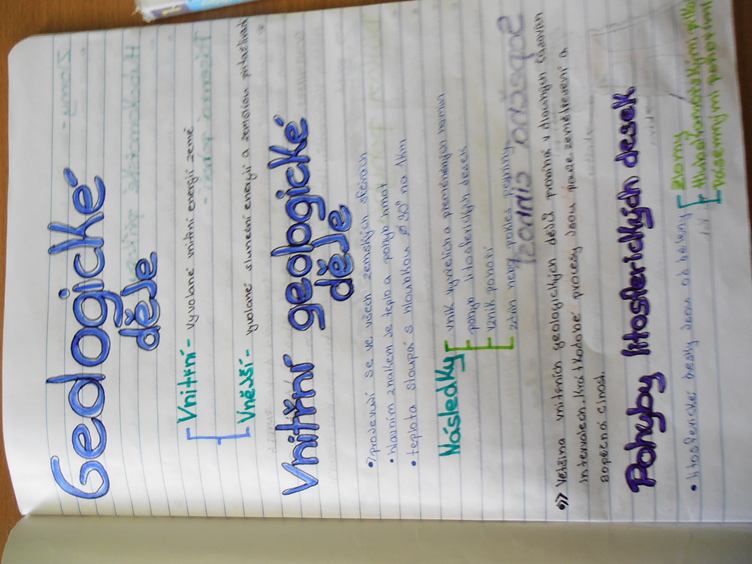 Geologické
děje
Vnitřní - vyvolané vnitřní energií země
Vnější - vyvolané sluneční energií a zemskou přitažlivostí
Vnitřní geologické
děje
projevují se ve všech zemských sférách
• hlavním znakem je teplo a pohyb hmot
• teplota stoupá s hloubkou 30° na 1km
Následky
vznik vyvřelých a přeměněných hornin
pohyb litosferických desek
vznik pohoří
zdvih nebo pokles pevniny
Většina vnitřních geologických dějů probíhá v dlouhých časových
intervalech. Krátkodobé procesy jsou pouze zemětřesení a
sopečná činost.
Pohyby litosferických desek
• litosferické desky jsou odděleny
zlomy
hlubokooceánskými příkopy
vzásemnými pohořími